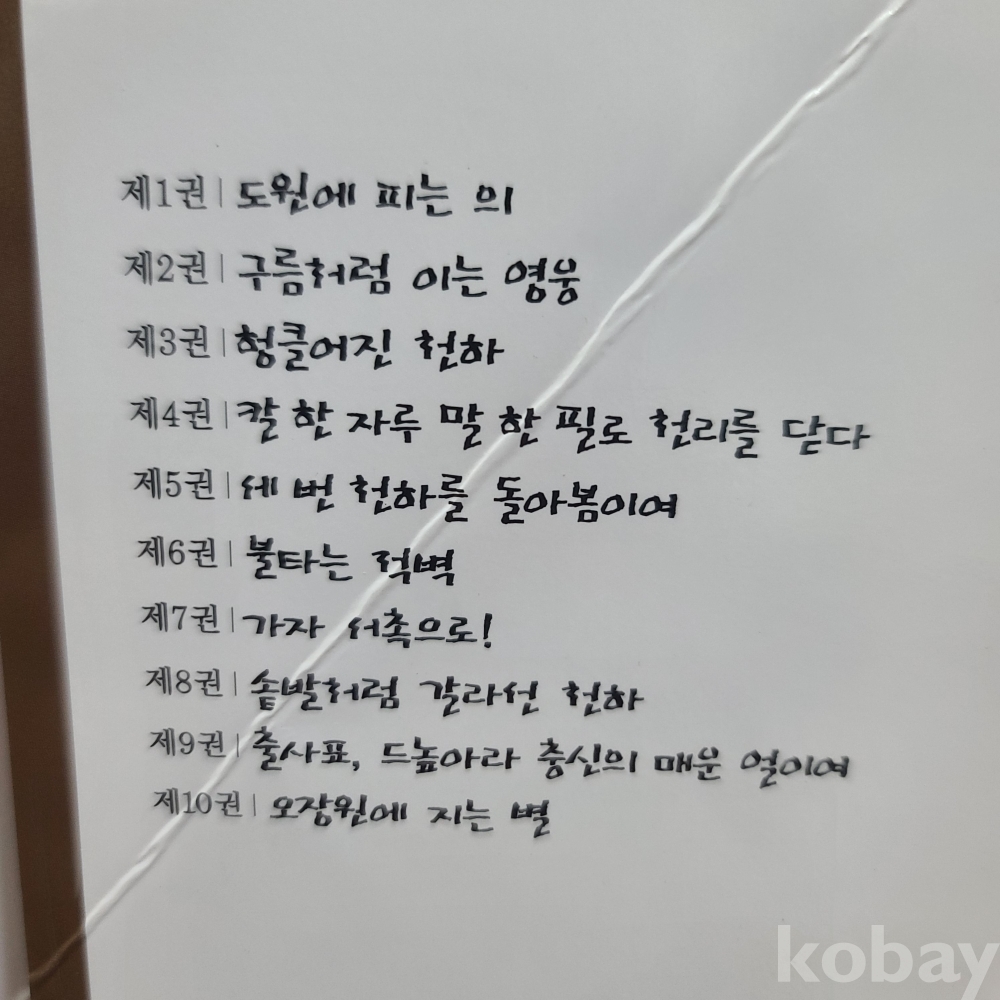 제1권 | 도원에 피는 의
제2권 | 구름처럼 이는 영웅
제3권 | 헝클어진 천하
제4권 | 칼 한 자루 말 한 필로 천리를 닫다
제5권 | 세 번 천하를 돌아봄이여
제6권 | 불타는 적벽
제7권 | 가자 서촉으로!
제8권 | 솥발처럼 갈라선 천하
제9권 | 출사표, 드높아라 충신의 매운 얼이여
제10권 | 오장원에 지는 별
kobay